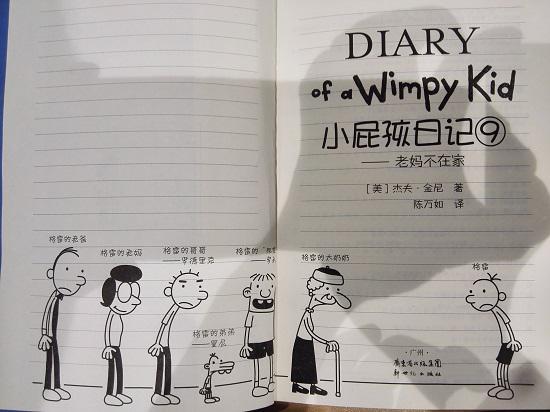 DIARY
of a Wimpy Kid
小屁孩日记⑨
—— 老妈不在家
[美] 杰夫·金尼 著
陈万如 译
格雷的老爸
格雷的老妈
格雷的哥哥
——罗德里克
格雷的弟弟
——曼尼
格雷的
格雷的太奶奶
格雷
·广州·
广东省出版集团
新世纪出版社